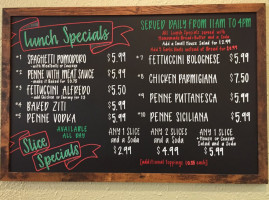 Lunch Specials
SERVED DAILY FROM 11AM TO 4PM
All Lunch Specials served with
Homemade Bread+Butter and a Soda
Add a Small House Salad for $2.99
#1 SPAGHETTI POMODORO $5.99
with Meatballs or Sausage
#2 PENNE WITH MEAT SAUCE $5.99
make it Baked for $0.75
#3 FETTUCCINI ALFREDO $5.50
add Chicken or Shrimp for
#4 BAKED ZITI $5.99
#5 PENNE VODKA $5.99
FETTUCCINI BOLOGNESE $5.99
CHICKEN PARMIGIANA $7.50
PENNE PUTTANESCA $5.99
#10 PENNE SICILIANA $5.99
Slice Specials
AVAILABLE
ALL DAY
ANY 1 SLICE
and a Soda
$2.99
ANY 2 SLICES
and a Soda
$4.99
ANY 1 SLICE
+ House or Caesar
Salad and a Soda
$5.99
[additional toppings $0.50 each]